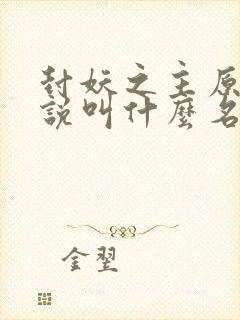 封妖之主原
說叫什麼名
金翌